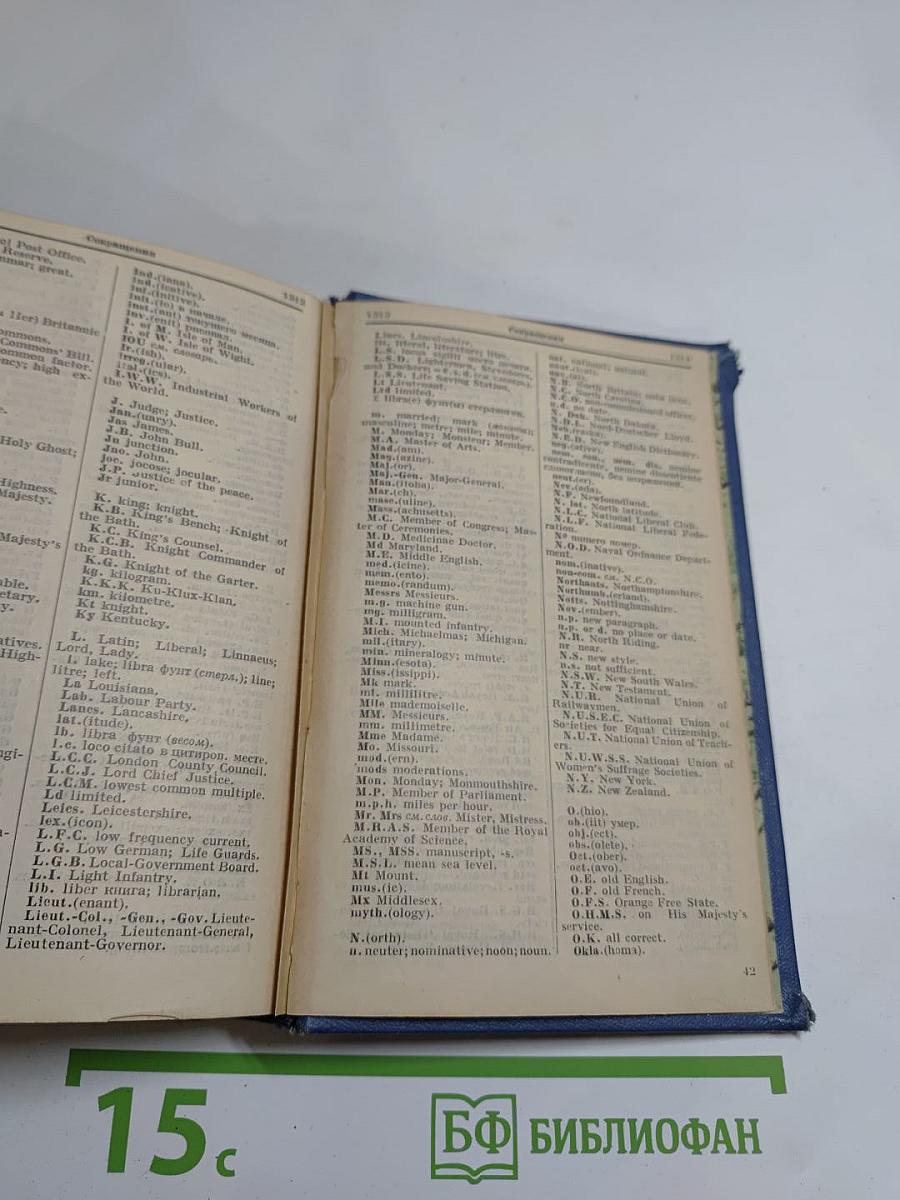 Post Office.
Reserve.
great.
Her) Britannic
Commons.
Commons' Bill.
common factor.
high
Holy Ghost;
Highness.
Majesty.
Majesty's
Сокращения
1312
Ind.(iana).
ind.(icative).
inf.(initive).
init.(io) в начале.
inst.(ant) текущего месяца.
inv.(enit)
I. of M. Isle of Man.
I. of W. Isle of Wight.
IOU см. словарь.
Ir.(ish).
irreg.(ular).
ital.(ics).
I.W.W. Industrial Workers of
the World.
J. Judge; Justice.
Jan.(uary).
Jas James.
J.B. John Bull.
Jn junction.
Jno. John.
joc. jocose; jocular.
J.P. Justice of the peace.
Jr junior.
K. king; knight.
K.B. King's Bench; Knight of
the Bath.
K.C. King's Counsel.
K.C.B. Knight Commander of
the Bath.
K.G. Knight of the Garter.
kg. kilogram.
K.K.K. Ku-Klux-Klan.
km. kilometre.
Kt knight.
Ky Kentucky.
L. Latin; Liberal; Linnaeus;
Lord, Lady.
l. lake; libra фунт (стерл.); line;
litre; left.
La Louisiana.
Lab. Labour Party.
Lancs. Lancashire,
lat.(itude).
lb. libra фунт (весом).
l.c. loco citato в цитиров. месте.
L.C.C. London County Council.
L.C.J. Lord Chief Justice.
L.C.M. lowest common multiple.
Ld limited.
Leics. Leicestershire.
lex.(icon).
L.F.C. low frequency current.
L.G. Low German; Life Guards.
L.G.B. Local-Government Board.
L.I. Light Infantry.
lib. liber книга; librarian.
Lieut.(enant).
Lieut.-Col., -Gen., -Gov. Lieute-
nant-Colonel, Lieutenant-General,
Lieutenant-Governor.
1313
Сокращения
1314
Lincs. Lincolnshire.
lit. literal, literature; litre.
L.S.
L.S.D. Lightermen, Stevedores,
and Dockers;
L.S.S. Life Saving Station.
Lt Lieutenant.
Ltd limited.
£ libra(e) фунт(ы) стерлингов.
m. married; mark
masculine; metre; mile; minute.
M. Monday; Monsieur; Member.
M.A. Master of Arts.
Mad.(am).
Mag.(azine).
Maj.(or).
Maj.-Gen. Major-General.
Man.(itoba).
Mar.(ch).
masc.(uline).
Mass.(achusetts).
M.C. Member of Congress; Mas-
ter of Ceremonies.
M.D. Medicinae Doctor.
Md Maryland.
M.E. Middle English.
med.(icine).
mem.(ento).
memo.(randum).
Messrs Messieurs.
m.g. machine gun.
mg. milligram.
M.I. mounted infantry.
Mich. Michaelmas; Michigan.
mil.(itary).
min. mineralogy; minute.
Minn.(esota).
Miss.(issippi).
Mk mark.
ml. millilitre.
Mlle mademoiselle.
MM. Messieurs.
mm. millimetre.
Mme Madame.
Mo. Missouri.
mod.(ern).
mods moderations.
Mon. Monday; Monmouthshire.
M.P. Member of Parliament.
m.p.h. miles per hour.
Mr. Mrs см. слов. Mister, Mistress.
M.R.A.S. Member of the Royal
Academy of Science.
MS., MSS. manuscript, -s.
M.S.L. mean sea level.
Mt Mount.
mus.(ic).
Mx Middlesex.
myth.(ology).
N.(orth).
n. neuter; nominative; noon; noun.
nat. national; natural.
naut.(ical).
N.B. North Britain; nota bene.
N.C. North Carolina.
N.C.O. non-commissioned officer.
n.d. no date.
N. Dak. North Dakota.
N.D.L. Nord-Deutscher Lloyd.
Neb.(raska).
N.E.D. New English Dictionary.
neg.(ative).
nem. con., nem. dis. nemine
contradicente, nemine dissentiente
единогласно, без возражений.
neut.(er).
Nev.(ada).
N.F. Newfoundland.
N. lat. North latitude.
N.L.C. National Liberal Club.
N.L.F. National Liberal Fede-
ration.
№ numero номер.
N.O.D. Naval Ordnance Depart-
ment.
nom.(inative).
non-com. см. N.C.O.
Northants. Northamptonshire.
Northumb.(erland).
Notts. Nottinghamshire.
Nov.(ember).
n.p. new paragraph.
n.p. or d. no place or date.
N.R. North Riding.
nr near.
N.S. new style.
n.s. not sufficient.
N.S.W. New South Wales.
N.T. New Testament.
N.U.R. National Union of
Railwaymen.
N.U.S.E.C. National Union of
Societies for Equal Citizenship.
N.U.T. National Union of Teach-
ers.
N.U.W.S.S. National Union of
Women's Suffrage Societies.
N.Y. New York.
N.Z. New Zealand.
O.(hio).
ob.(iit) умер.
obj.(ect).
obs.(olete).
Oct.(ober).
oct.(avo).
O.E. old English.
O.F. old French.
O.F.S. Orange Free State.
O.H.M.S. on His Majesty's
service.
O.K. all correct.
Okla.(homa).
42
15 с
БФ БИБЛИОФАН